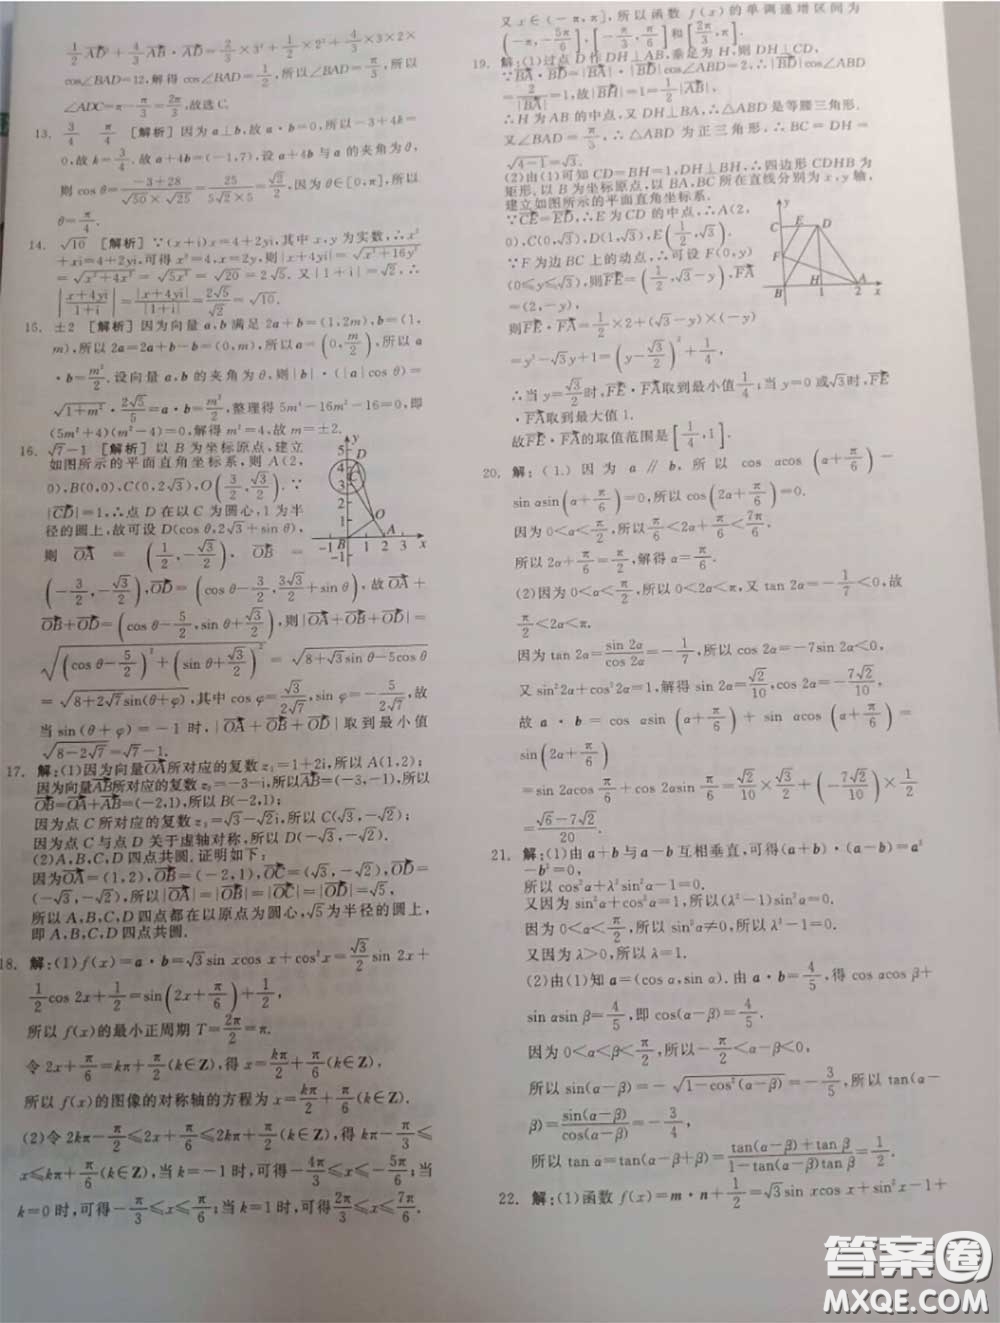 1/2 AD² + 4/3 AB·AD = 2/3×3²+1/2×2²+4/3×3×2×
cos∠BAD=12,解得 cos∠BAD=1/2,所以∠BAD=π/3,所以
∠ADC=π-π/3=2π/3,故选C.
13. 3/4 π/4 [解析] 因为 a⊥b,故 a·b=0,所以-3+4k=
0,故 k=3/4. 故 a+4b=(-1,7),设 a+4b 与 a 的夹角为 θ,
则 cos θ=(-3+28)/(√50×√25)=25/(5√2×5)=√2/2,因为 θ∈[0,π],所以
θ=π/4.
14. √10 [解析] ∵(x+i)x=4+2yi,其中 x,y 为实数,∴x²
+xi=4+2yi,可得 x²=4,x=2y,则|x+4yi|=√(x²+16y²)
=√(x²+4x²)=√(5x²)=√20=2√5. 又|1+i|=√2,∴
|(x+4yi)/(1+i)|=|x+4yi|/|1+i|=2√5/√2=√10.
15. ±2 [解析] 因为向量 a,b 满足 2a+b=(1,2m),b=(1,
m),所以 2a=2a+b-b=(0,m),所以 a=(0,m/2),所以 a
·b=m²/2. 设向量 a,b 的夹角为 θ,则|b|·(|a|cos θ)=
√(1+m²)·2√5/5=a·b=m²/2,整理得 5m⁴-16m²-16=0,即
(5m²+4)(m²-4)=0,解得 m²=4,故 m=±2.
16. √7-1 [解析] 以 B 为坐标原点,建立
如图所示的平面直角坐标系,则 A(2,
0),B(0,0),C(0,2√3),O(3/2,√3/2). ∵
|CD|=1,∴点 D 在以 C 为圆心,1 为半
径的圆上,故可设 D(cos θ,2√3+sin θ),
则 OA=(1/2,-√3/2),OB=
(-3/2,-√3/2),OD=(cos θ-3/2,3√3/2+sin θ),故OA+
OB+OD=(cos θ-5/2,sin θ+√3/2),则|OA+OB+OD|=
√((cos θ-5/2)²+(sin θ+√3/2)²)=√(8+√3sin θ-5cos θ)
=√(8+2√7sin(θ+φ)),其中 cos φ=√3/(2√7),sin φ=-5/(2√7),故
当 sin(θ+φ)=-1 时,|OA+OB+OD|取到最小值
√(8-2√7)=√7-1.
y
5
4
3
2
1
-1
B
1
2
3
x
-1
C
D
O
A
17. 解:(1)因为向量OA所对应的复数 z₁=1+2i,所以 A(1,2);
因为向量AB所对应的复数 z₂=-3-i,所以AB=(-3,-1),所以
OB=OA+AB=(-2,1),所以 B(-2,1);
因为点 C 所对应的复数 z₃=√3-√2i,所以 C(√3,-√2);
因为点 C 与点 D 关于虚轴对称,所以 D(-√3,-√2).
(2)A,B,C,D 四点共圆. 证明如下:
因为OA=(1,2),OB=(-2,1),OC=(√3,-√2),OD=
(-√3,-√2),所以|OA|=|OB|=|OC|=|OD|=√5,
所以 A,B,C,D 四点都在以原点为圆心,√5为半径的圆上,
即 A,B,C,D 四点共圆.
18. 解:(1)f(x)=a·b=√3sin xcos x+cos²x=√3/2 sin 2x+
1/2 cos 2x+1/2=sin(2x+π/6)+1/2,
所以 f(x)的最小正周期 T=2π/2=π.
令 2x+π/6=kπ+π/2(k∈Z),得 x=kπ/2+π/6(k∈Z),
所以 f(x)的图像的对称轴的方程为 x=kπ/2+π/6(k∈Z).
(2)令 2kπ-π/2≤2x+π/6≤2kπ+π/2(k∈Z),得 kπ-π/3≤
x≤kπ+π/6(k∈Z),当 k=-1 时,可得-4π/3≤x≤-5π/6;当
k=0 时,可得-π/3≤x≤π/6;当 k=1 时,可得2π/3≤x≤7π/6.
又 x∈(-π,π],所以函数 f(x)的单调递增区间为
(-π,-5π/6],[-π/3,π/6]和[2π/3,π].
19. 解:(1)过点 D 作 DH⊥AB,垂足为 H,则 DH⊥CD.
∵BA·BD=|BA|·|BD|cos∠ABD=2,∴|BD|cos∠ABD
=2/|BA|=1,故|BH|=1=1/2|AB|,
∴H 为 AB 的中点,又 DH⊥AB,∴△ABD 是等腰三角形.
又∠BAD=π/3,∴△ABD 为正三角形,∴BC=DH=
√(4-1)=√3.
(2)由(1)可知 CD=BH=1,DH⊥BH,∴四边形 CDHB 为
矩形. 以 B 为坐标原点,以 BA,BC 所在直线分别为 x,y 轴,
建立如图所示的平面直角坐标系.
∵CE=ED,∴E 为 CD 的中点,∴A(2,
0),C(0,√3),D(1,√3),E(1/2,√3).
∵F 为边 BC 上的动点,∴可设 F(0,y)
(0≤y≤√3),则FE=(1/2,√3-y),FA
=(2,-y),
则FE·FA=1/2×2+(√3-y)×(-y)
=y²-√3y+1=(y-√3/2)²+1/4,
∴当 y=√3/2时,FE·FA取到最小值1/4;当 y=0 或√3时,FE
·FA取到最大值 1.
故FE·FA的取值范围是[1/4,1].
y
C
E
D
F
B
H
1
A
2
x
20. 解:(1)因为 a∥b,所以 cos αcos(α+π/6)-
sin αsin(α+π/6)=0,所以 cos(2α+π/6)=0.
因为 0<α<π/2,所以π/6<2α+π/6<7π/6,
所以 2α+π/6=π/2,解得 α=π/6.
(2)因为 0<α<π/2,所以 0<2α<π,又 tan 2α=-1/7<0,故
π/2<2α<π.
因为 tan 2α=sin 2α/cos 2α=-1/7,
又 sin²2α+cos²2α=1,解得 sin 2α=√2/10,cos 2α=-7√2/10,
故 a·b=cos αsin(α+π/6)+sin αcos(α+π/6)=
sin(2α+π/6)
=sin 2αcos π/6+cos 2αsin π/6=√2/10×√3/2+(-7√2/10)×1/2
=(√6-7√2)/20.
21. 解:(1)由 a+b 与 a-b 互相垂直,可得(a+b)·(a-b)=a²
-b²=0,
所以 cos²α+λ²sin²α-1=0.
又因为 sin²α+cos²α=1,所以(λ²-1)sin²α=0.
因为 0<α<π/2,所以 sin²α≠0,所以 λ²-1=0.
又因为 λ>0,所以 λ=1.
(2)由(1)知 a=(cos α,sin α). 由 a·b=4/5,得 cos αcos β+
sin αsin β=4/5,即 cos(α-β)=4/5.
因为 0<α<β<π/2,所以-π/2<α-β<0,
所以 sin(α-β)=-√(1-cos²(α-β))=-3/5,所以 tan(α-
β)=sin(α-β)/cos(α-β)=-3/4,
所以 tan α=tan(α-β+β)=(tan(α-β)+tan β)/(1-tan(α-β)tan β)=1/2.
22. 解:(1)函数 f(x)=m·n+1/2=√3sin xcos x+sin²x-1+
答案卷
MXQE.COM